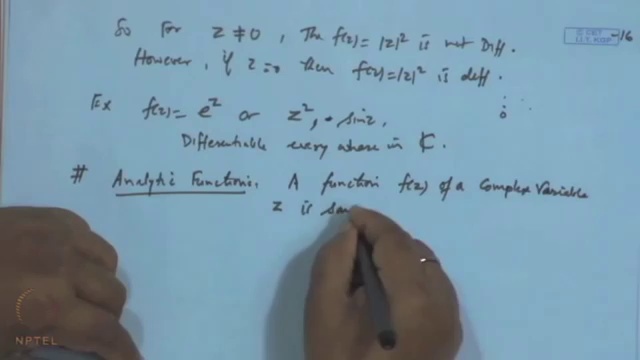 So For z ≠ 0, The f(z) = |z|² is not Diff.
However, if z = 0 then f(z) = |z|² is diff.
Ex f(z) = e^z or z², sin z,
Differentiable every where in ₵.
# Analytic Functions. A function f(z) of a Complex Variable
z is
© CET
I.I.T. KGP
-16
NPTEL